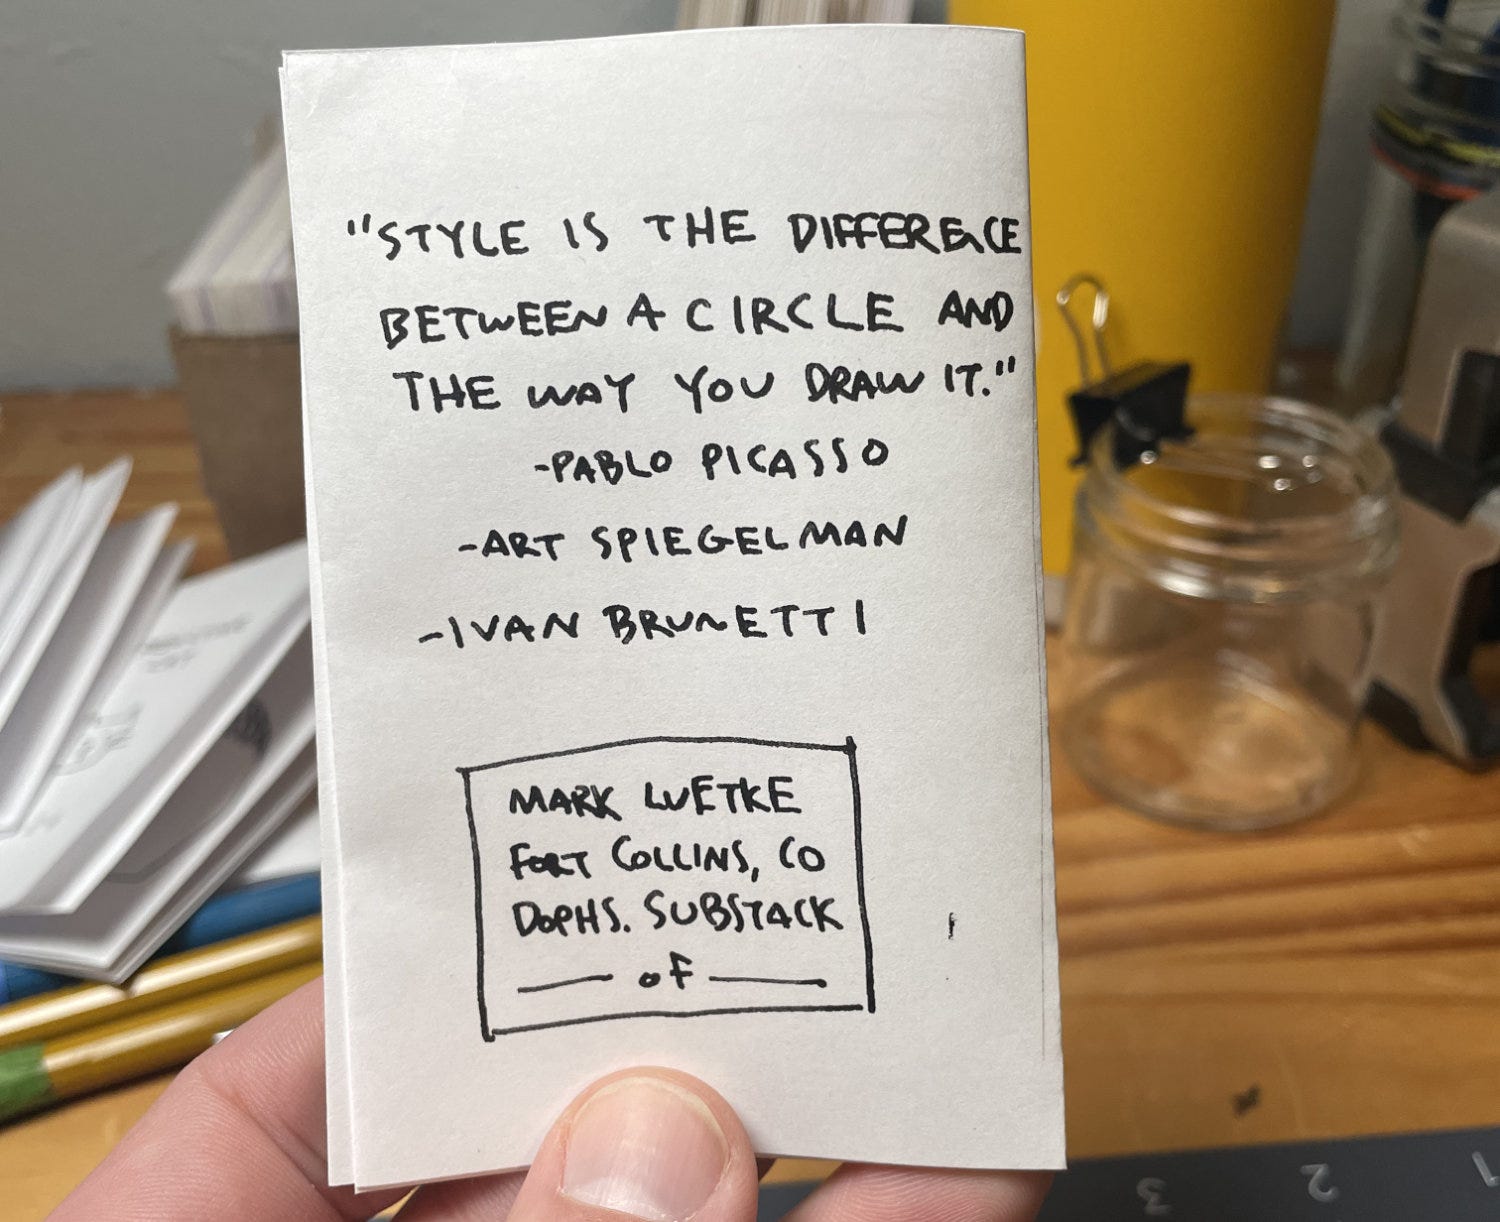 "STYLE IS THE DIFFERENCE
BETWEEN A CIRCLE AND
THE WAY YOU DRAW IT."
-PABLO PICASSO
-ART SPIEGELMAN
-IVAN BRUNETTI
MARK LUETKE
FORT COLLINS, CO
DOPHS. SUBSTACK
—— OF ——
3 2 1